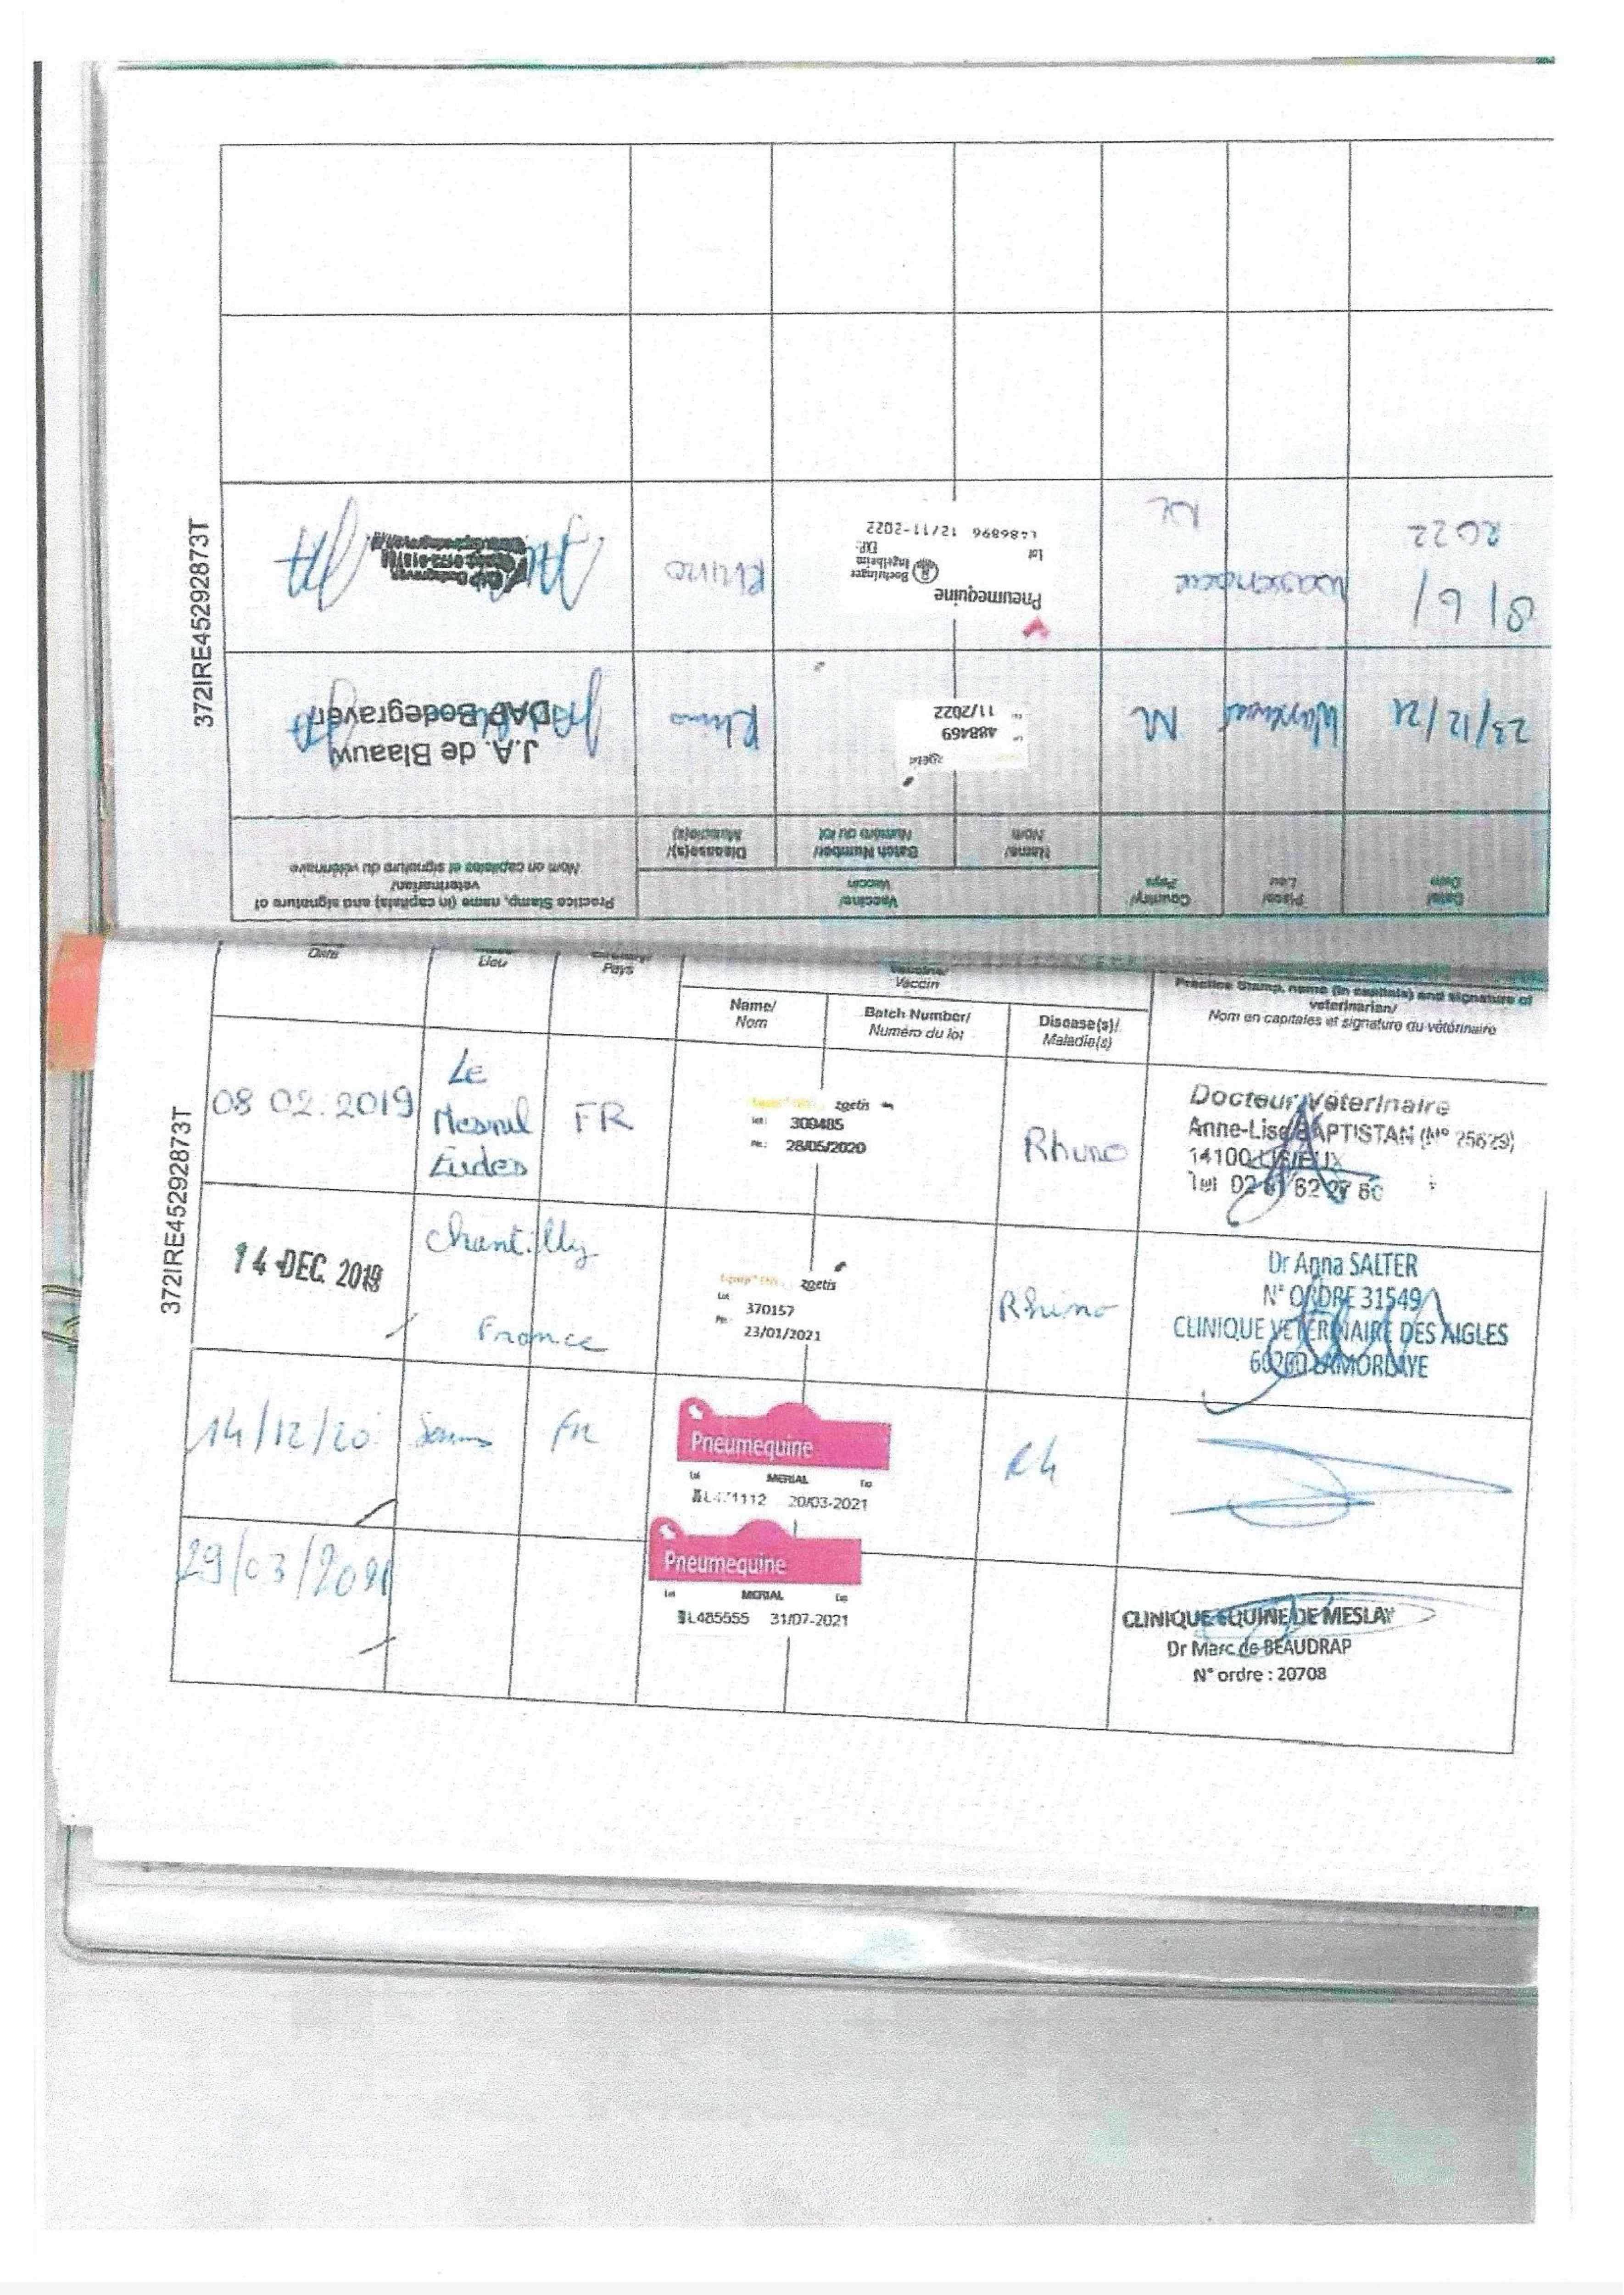 372IRE452928873T
Date/
Date
Place/
Lieu
Country/
Pays
Vaccine/
Vaccin
Name/
Nom
Batch Number/
Numéro du lot
Disease(s)/
Maladie(s)
Practice Stamp, name (in capitals) and signature of
veterinarian/
Nom en capitales et signature du vétérinaire
23/12/21
zoetis
488469
11/2022
Rhino
J.A. de Blaauw
DAP Bodegraven
8/6/
2022
Wassenaar
NL
Pneumequine
Boehringer
Ingelheim
Lot
EXP:
L486896 12/11-2022
Rhino
372IRE452928873T
Date
Lieu
Pays
Vaccin
Name/
Nom
Batch Number/
Numéro du lot
Disease(s)/
Maladie(s)
Practice Stamp, name (in capitals) and signature of
veterinarian/
Nom en capitales et signature du vétérinaire
08 02.2019
Le
Mesnil
Eudes
FR
zoetis
309485
28/05/2020
Rhino
Docteur Vétérinaire
Anne-Lise BAPTISTAN (N° 25629)
14100 LISIEUX
Tel 02 31 62 27 80
14 DEC. 2019
Chantilly
France
zoetis
Lot
370157
23/01/2021
Rhino
Dr Anna SALTER
N° ORDRE 31549
CLINIQUE VETERINAIRE DES AIGLES
60260 LAMORLAYE
14/12/20
FR
Pneumequine
Lot MERIAL Exp
20/03-2021
Rh
29/03/2021
Pneumequine
Lot MERIAL Exp
L485555 31/07-2021
CLINIQUE EQUINE DE MESLAY
Dr Marc de BEAUDRAP
N° ordre : 20708